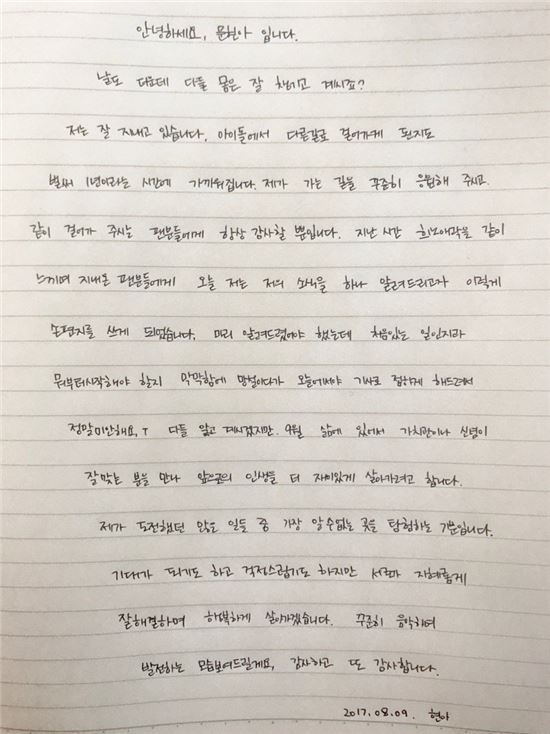 안녕하세요, 문현아 입니다.
날도 더운데 다들 몸은 잘 챙기고 계시죠?
저는 잘 지내고 있습니다. 아이돌에서 다른길로 걸어가게 된지도
벌써 1년이라는 시간에 가까워집니다. 제가 가는 길을 꾸준히 응원해 주시고
같이 걸어가 주시는 팬분들에게 항상 감사할 뿐입니다. 지난 시간 희노애락을 같이
느끼며 지내온 팬분들에게 오늘 저는 저의 소식을 하나 알려드리고자 이렇게
손편지를 쓰게 되었습니다. 미리 알려드렸어야 했는데 처음있는 일인지라
뭐부터시작해야 할지 막막함에 망설이다가 오늘에서야 기사로 접하게 해드려서
정말미안해요, T 다들 알고 계시겠지만. 9월 삶에 있어서 가치관이나 신념이
잘맞는 분을 만나 앞으로의 인생을 더 재미있게 살아가려고 합니다.
제가 도전했던 많은 일들 중 가장 알수없는 곳을 탐험하는 기분입니다.
기대가 되기도 하고 걱정스럽기도 하지만 서로가 지혜롭게
잘해결하며 행복하게 살아가겠습니다. 꾸준히 음악하며
발전하는 모습보여드릴게요, 감사하고 또 감사합니다.
2017.08.09. 현아